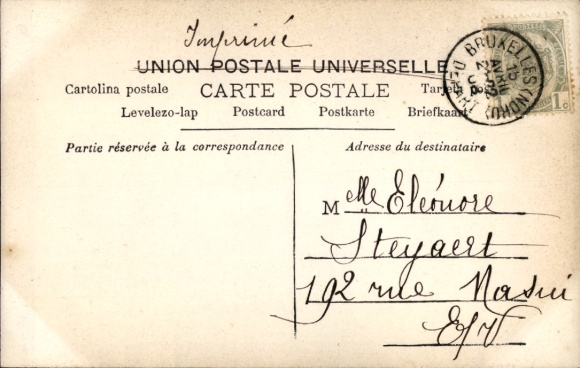 Imprimé
UNION POSTALE UNIVERSELLE
Cartolina postale CARTE POSTALE
Levelezo-lap Postcard Postkarte Briefkaart
BRUXELLES (NORD)
15
1c
Partie réservée à la correspondance
Adresse du destinataire
Melle Eléonore
Steyaert
192 rue Masui
E/V